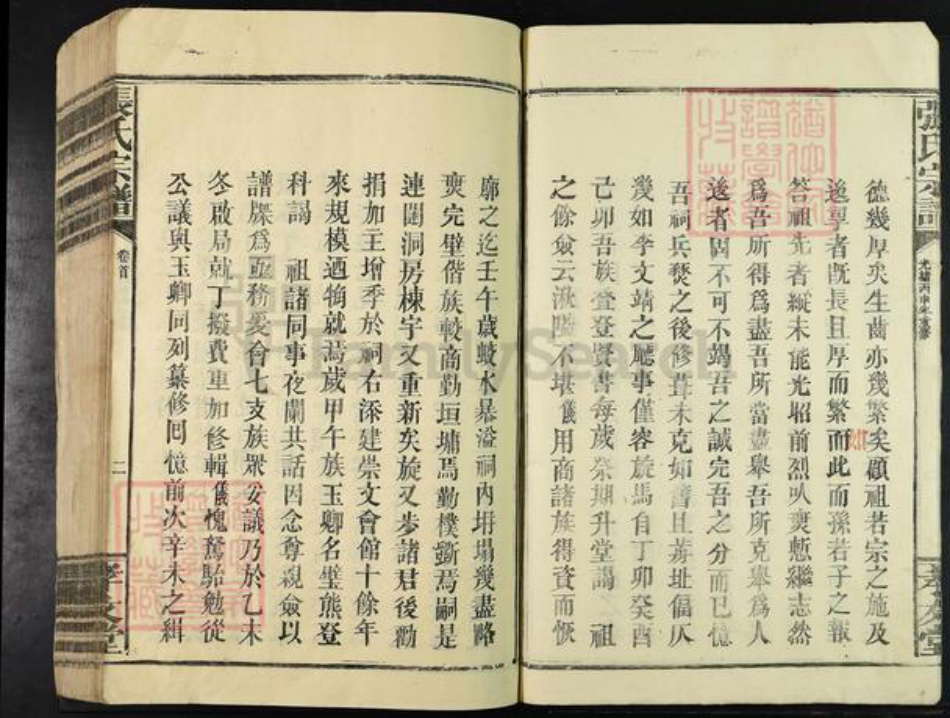 張氏宗譜
光緒丙申年重修
孝友堂
德幾厚矣生齒亦幾繁矣顧祖若宗之施及
遂享者既長且厚而繁而此而孫若子之報
如
答祖先者縱未能光昭前烈以衷慙繼志然
爲吾所得爲盡吾所當盡舉吾所克舉爲人
遂者固不可不竭吾之誠完吾之分而已憶
吾祠兵燹之後修葺未克如舊且芴址偪仄
幾如李文靖之廳事僅容旋馬自丁卯癸酉
己卯吾族疊登賢書每歲祭期升堂謁 祖
之餘僉云湫隘不堪儀用商諸族得資而恢
廓之迄壬午歲蛟水暴溢祠內坍塌幾盡略
衷完壁偕族較商勤垣墉焉勤樸斵焉嗣是
連闥洞房棟宇又重新矣旋又步諸君後勸
捐加主增季於祠右添建崇文會館十餘年
來規模迺觕就焉歲甲午族玉卿名璧熊登
科謁 祖諸同事夜闌共話因念尊親僉以
譜牒爲亟務爰會七支族衆妥議乃於乙未
冬啟局就丁撥費重加修輯儀愧駑駘勉從
公議與玉卿同列纂修囘憶前次辛未之緝
張氏宗譜
卷首
二
孝友堂
FamilySearch